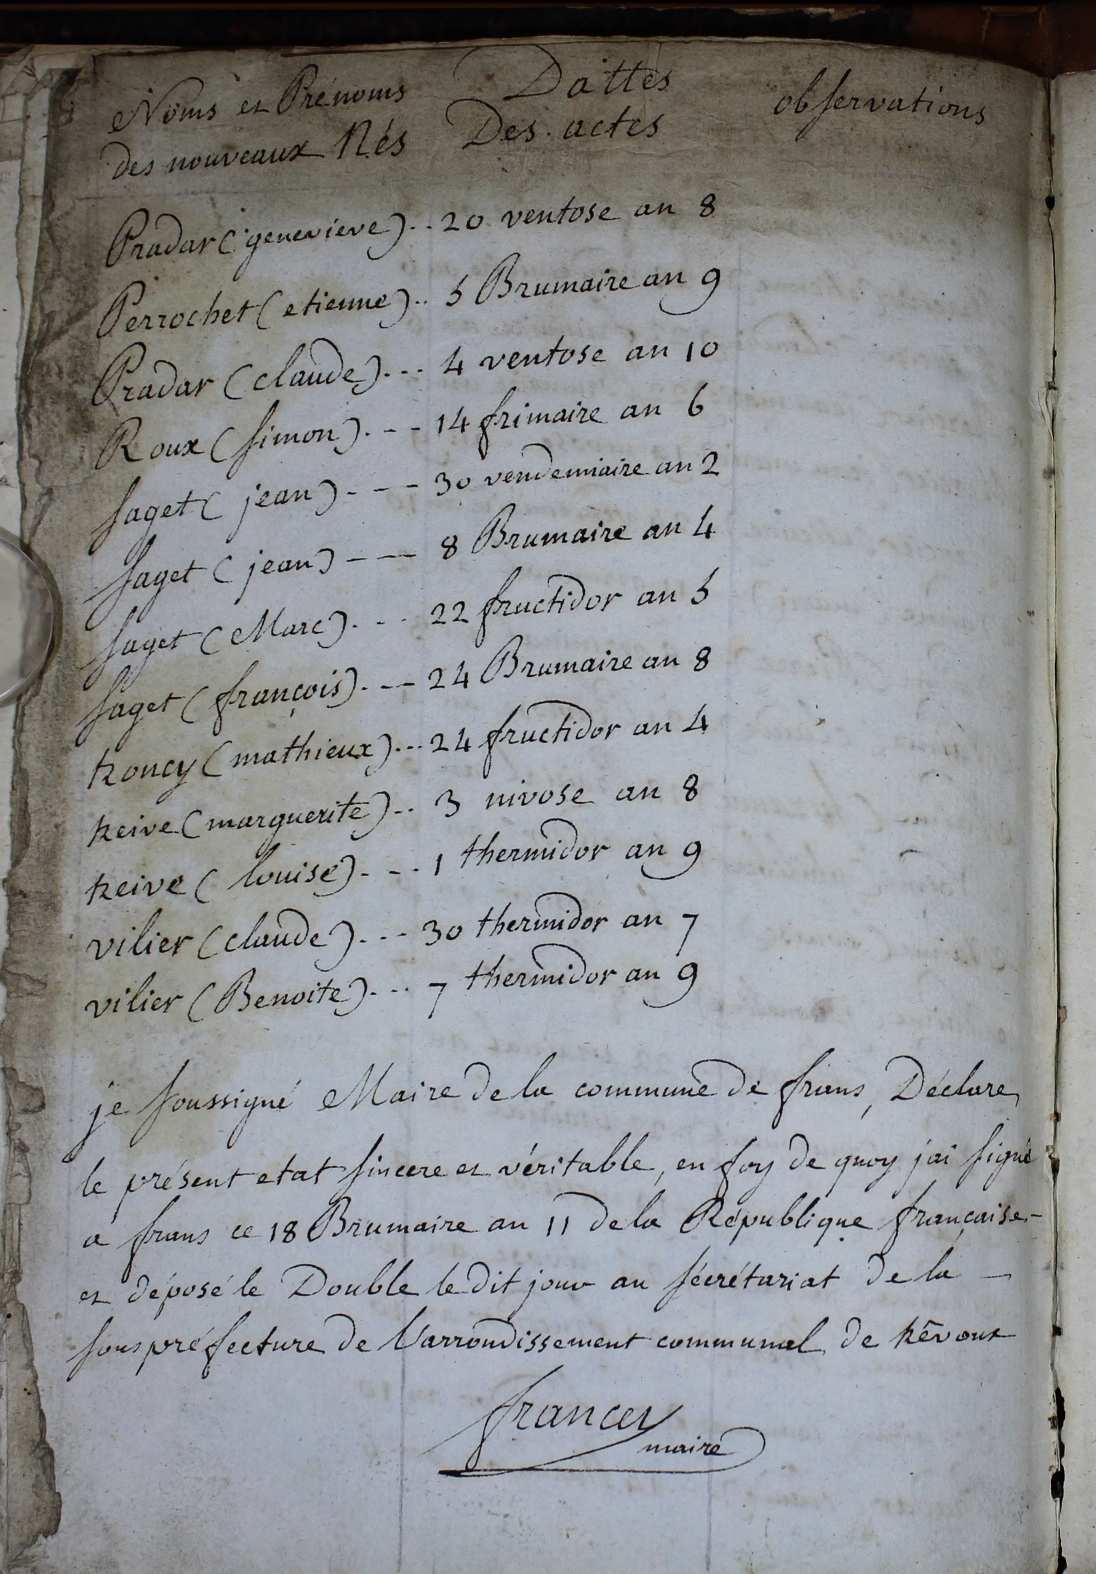 Noms et Prénoms Dattes observations
des nouveaux Nés Des actes
Pradar (genevieve) .. 20 ventose an 8
Perrochet (etienne) .. 5 Brumaire an 9
Pradar (claude) ... 4 ventose an 10
Roux (simon) . - - 14 frimaire an 6
saget (jean) - - - 30 vendemiaire an 2
saget (jean) - - - 8 Brumaire an 4
saget (Marc) . - . 22 fructidor an 5
saget (françois) . - - 24 Brumaire an 8
troncy (mathieux) ... 24 fructidor an 4
treive (marguerite) .. 3 nivose an 8
treive (louise) . - . 1 thermidor an 9
vilier (claude) ... 30 thermidor an 7
vilier (Benoite) . - . 7 thermidor an 9
je soussigné Maire de la commune de frans, Déclare
le présent etat sincere et véritable, en foy de quoy j'ai signé
a frans ce 18 Brumaire an 11 de la République française -
et déposé le Double le dit jour au sécrétariat de la -
souspréfecture de l'arrondissement communal de trévoux
francey
maire